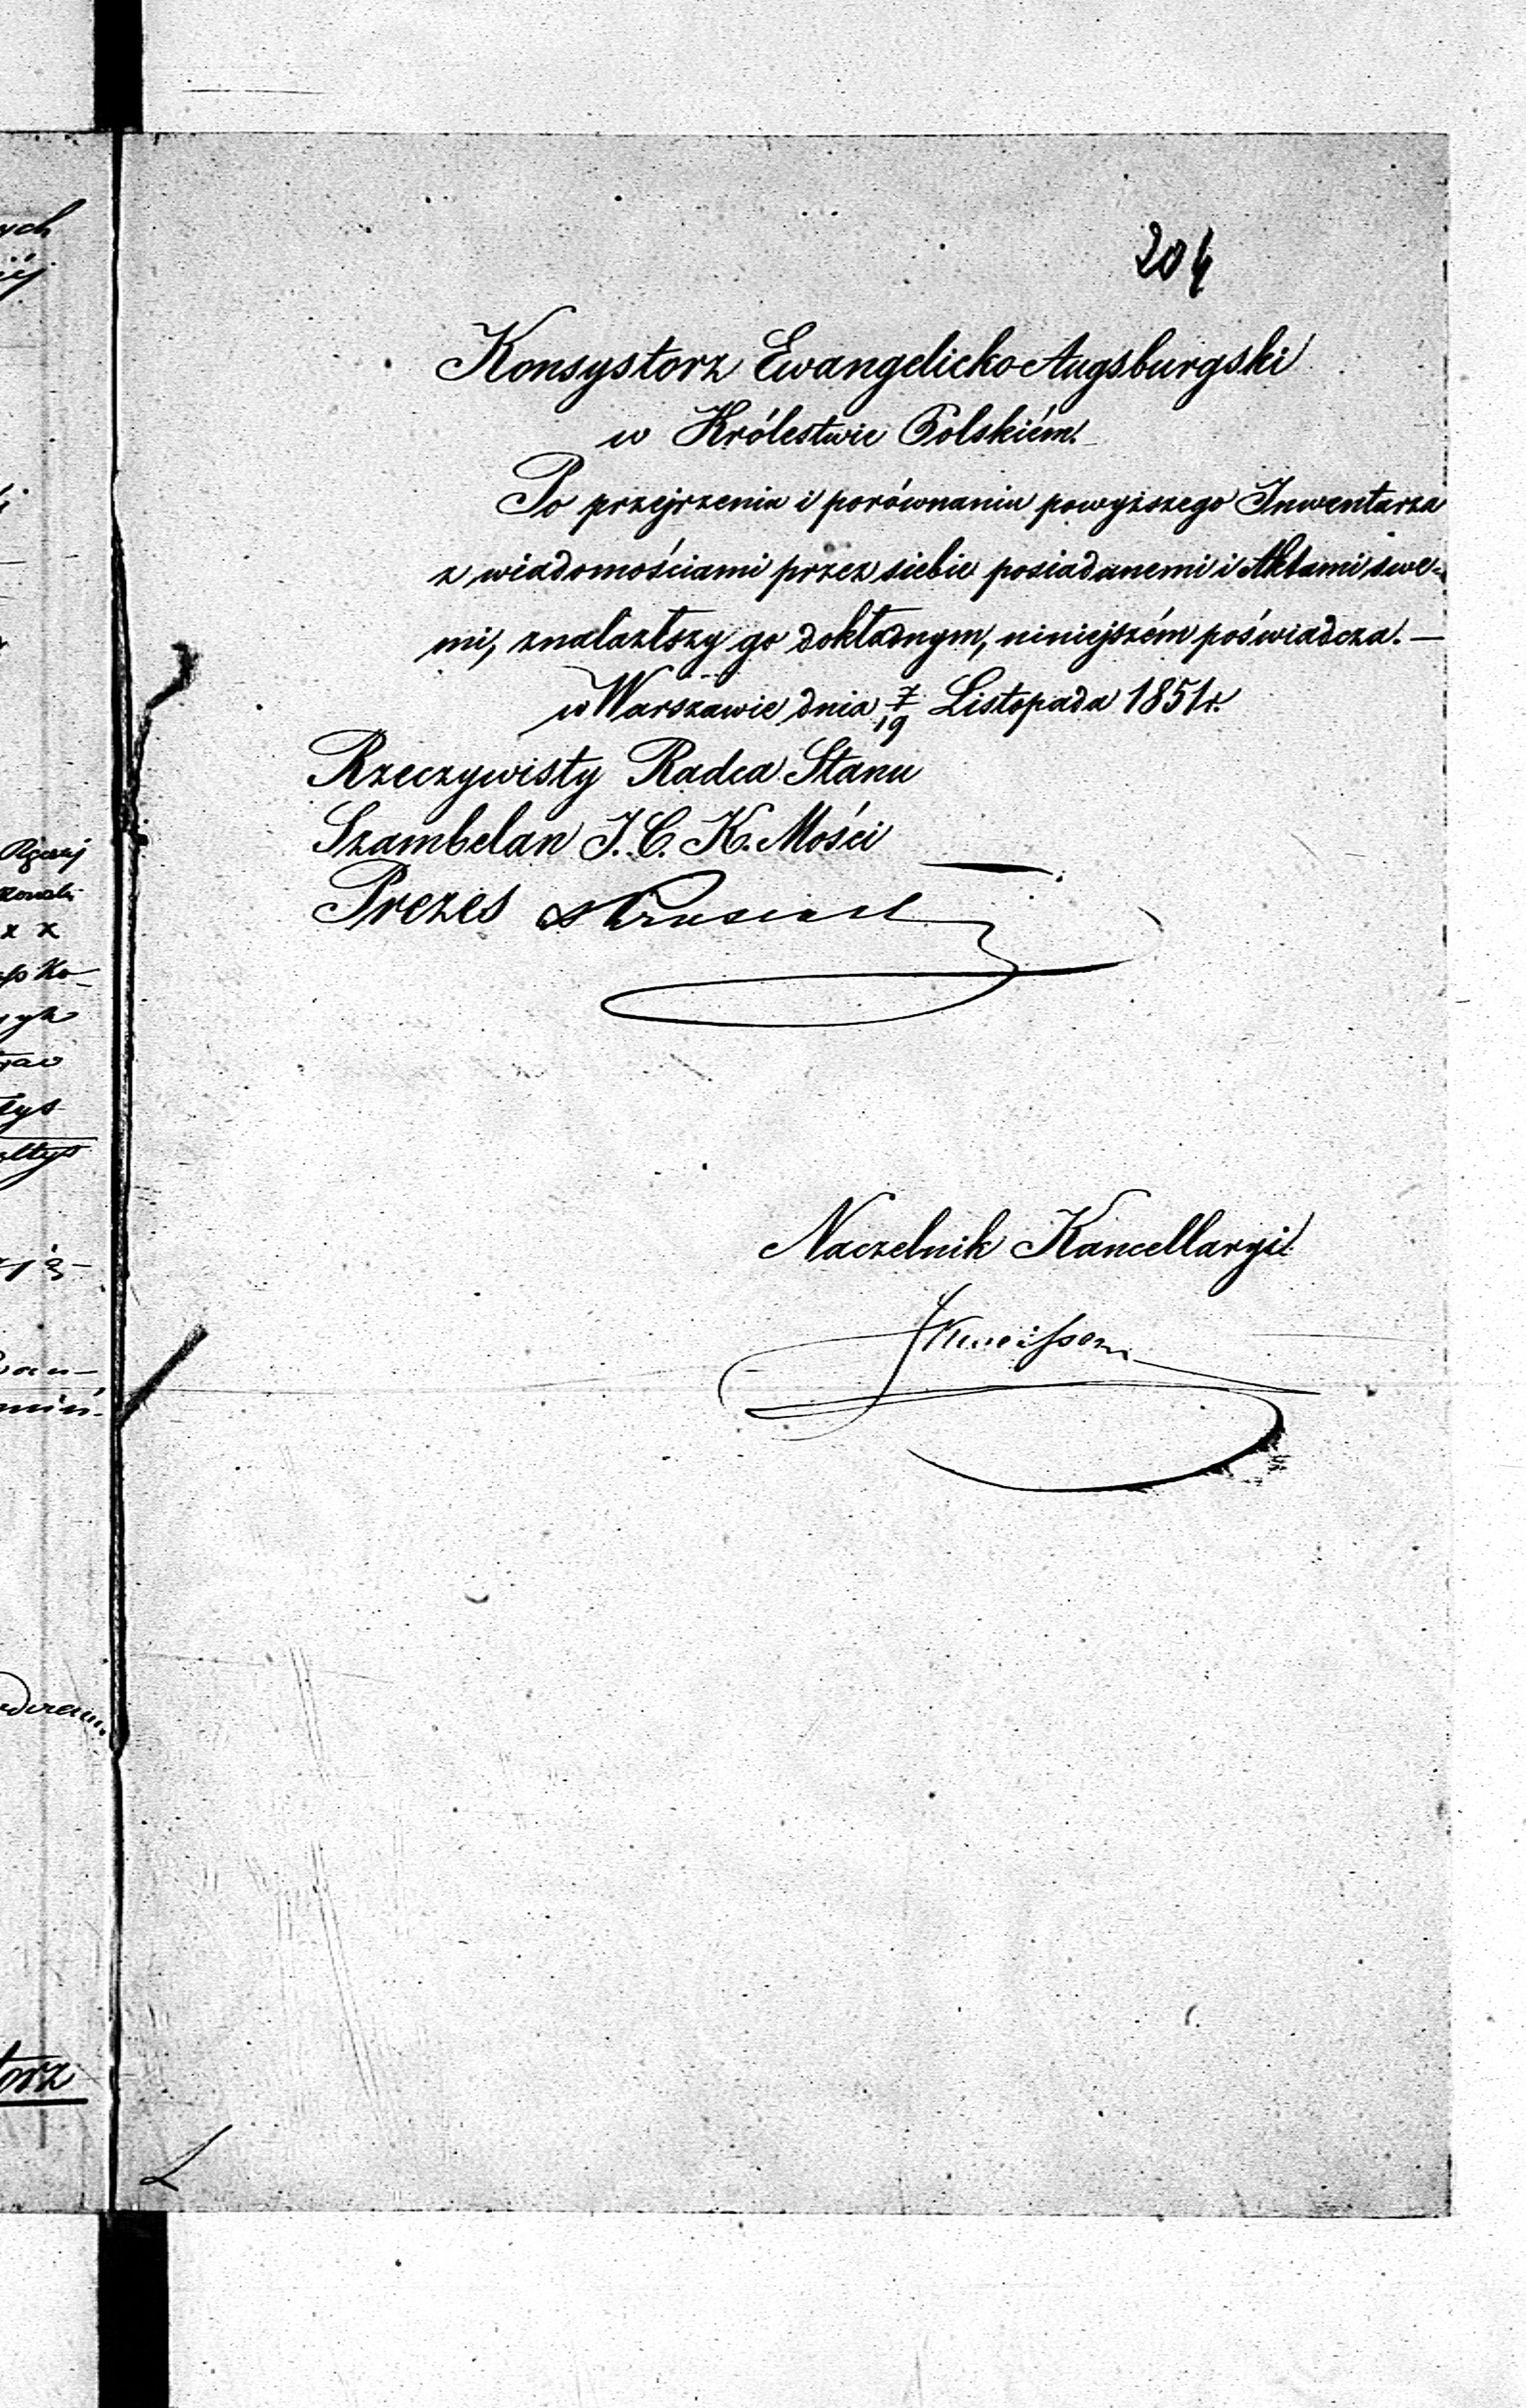 204
Konsystorz Ewangelicko-Augsburgski
w Królestwie Polskiém.
Po przejrzeniu i porównaniu powyższego Inwentarza
z wiadomościami przez siebie posiadanemi i Aktami swe-
mi, znalazłszy go dokładnym, niniejszém poświadcza. —
w Warszawie dnia 7/19 Listopada 1851 r.
Rzeczywisty Radca Stanu
Szambelan J. C. K. Mości
Prezes
Naczelnik Kancellaryi